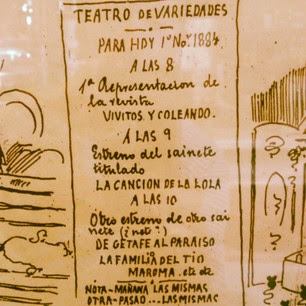 TEATRO DE VARIEDADES
PARA HOY 1º Nov. 1884.
A LAS 8
1ª Representacion de
la revista
VIVITOS Y COLEANDO.
A LAS 9
Estreno del sainete
titulado
LA CANCION DE LA LOLA
A LAS 10
Otro estreno de otro sai
nete (¡note!)
DE GETAFE AL PARAISO
LA FAMILIA DEL TIO
MAROMA. etc etc
NOTA-MAÑANA LAS MISMAS
OTRA-PASAO...LAS MISMAS